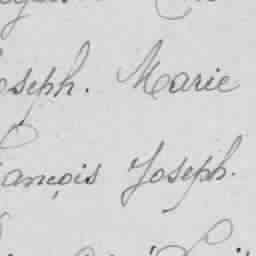 oseph. Marie
ançois Joseph.